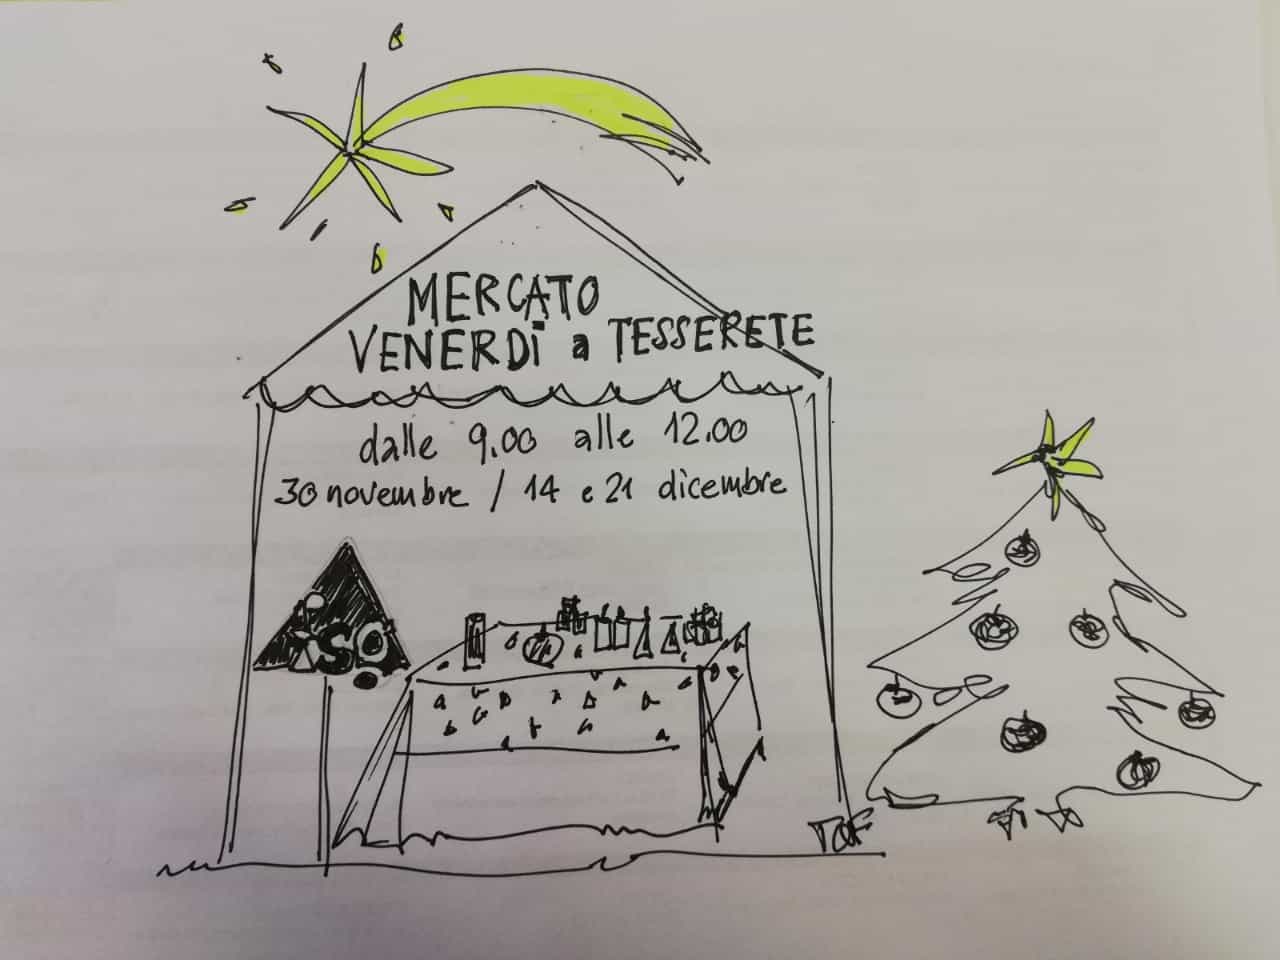 MERCATO
VENERDÌ a TESSERETE
dalle 9.00 alle 12.00
30 novembre / 14 e 21 dicembre